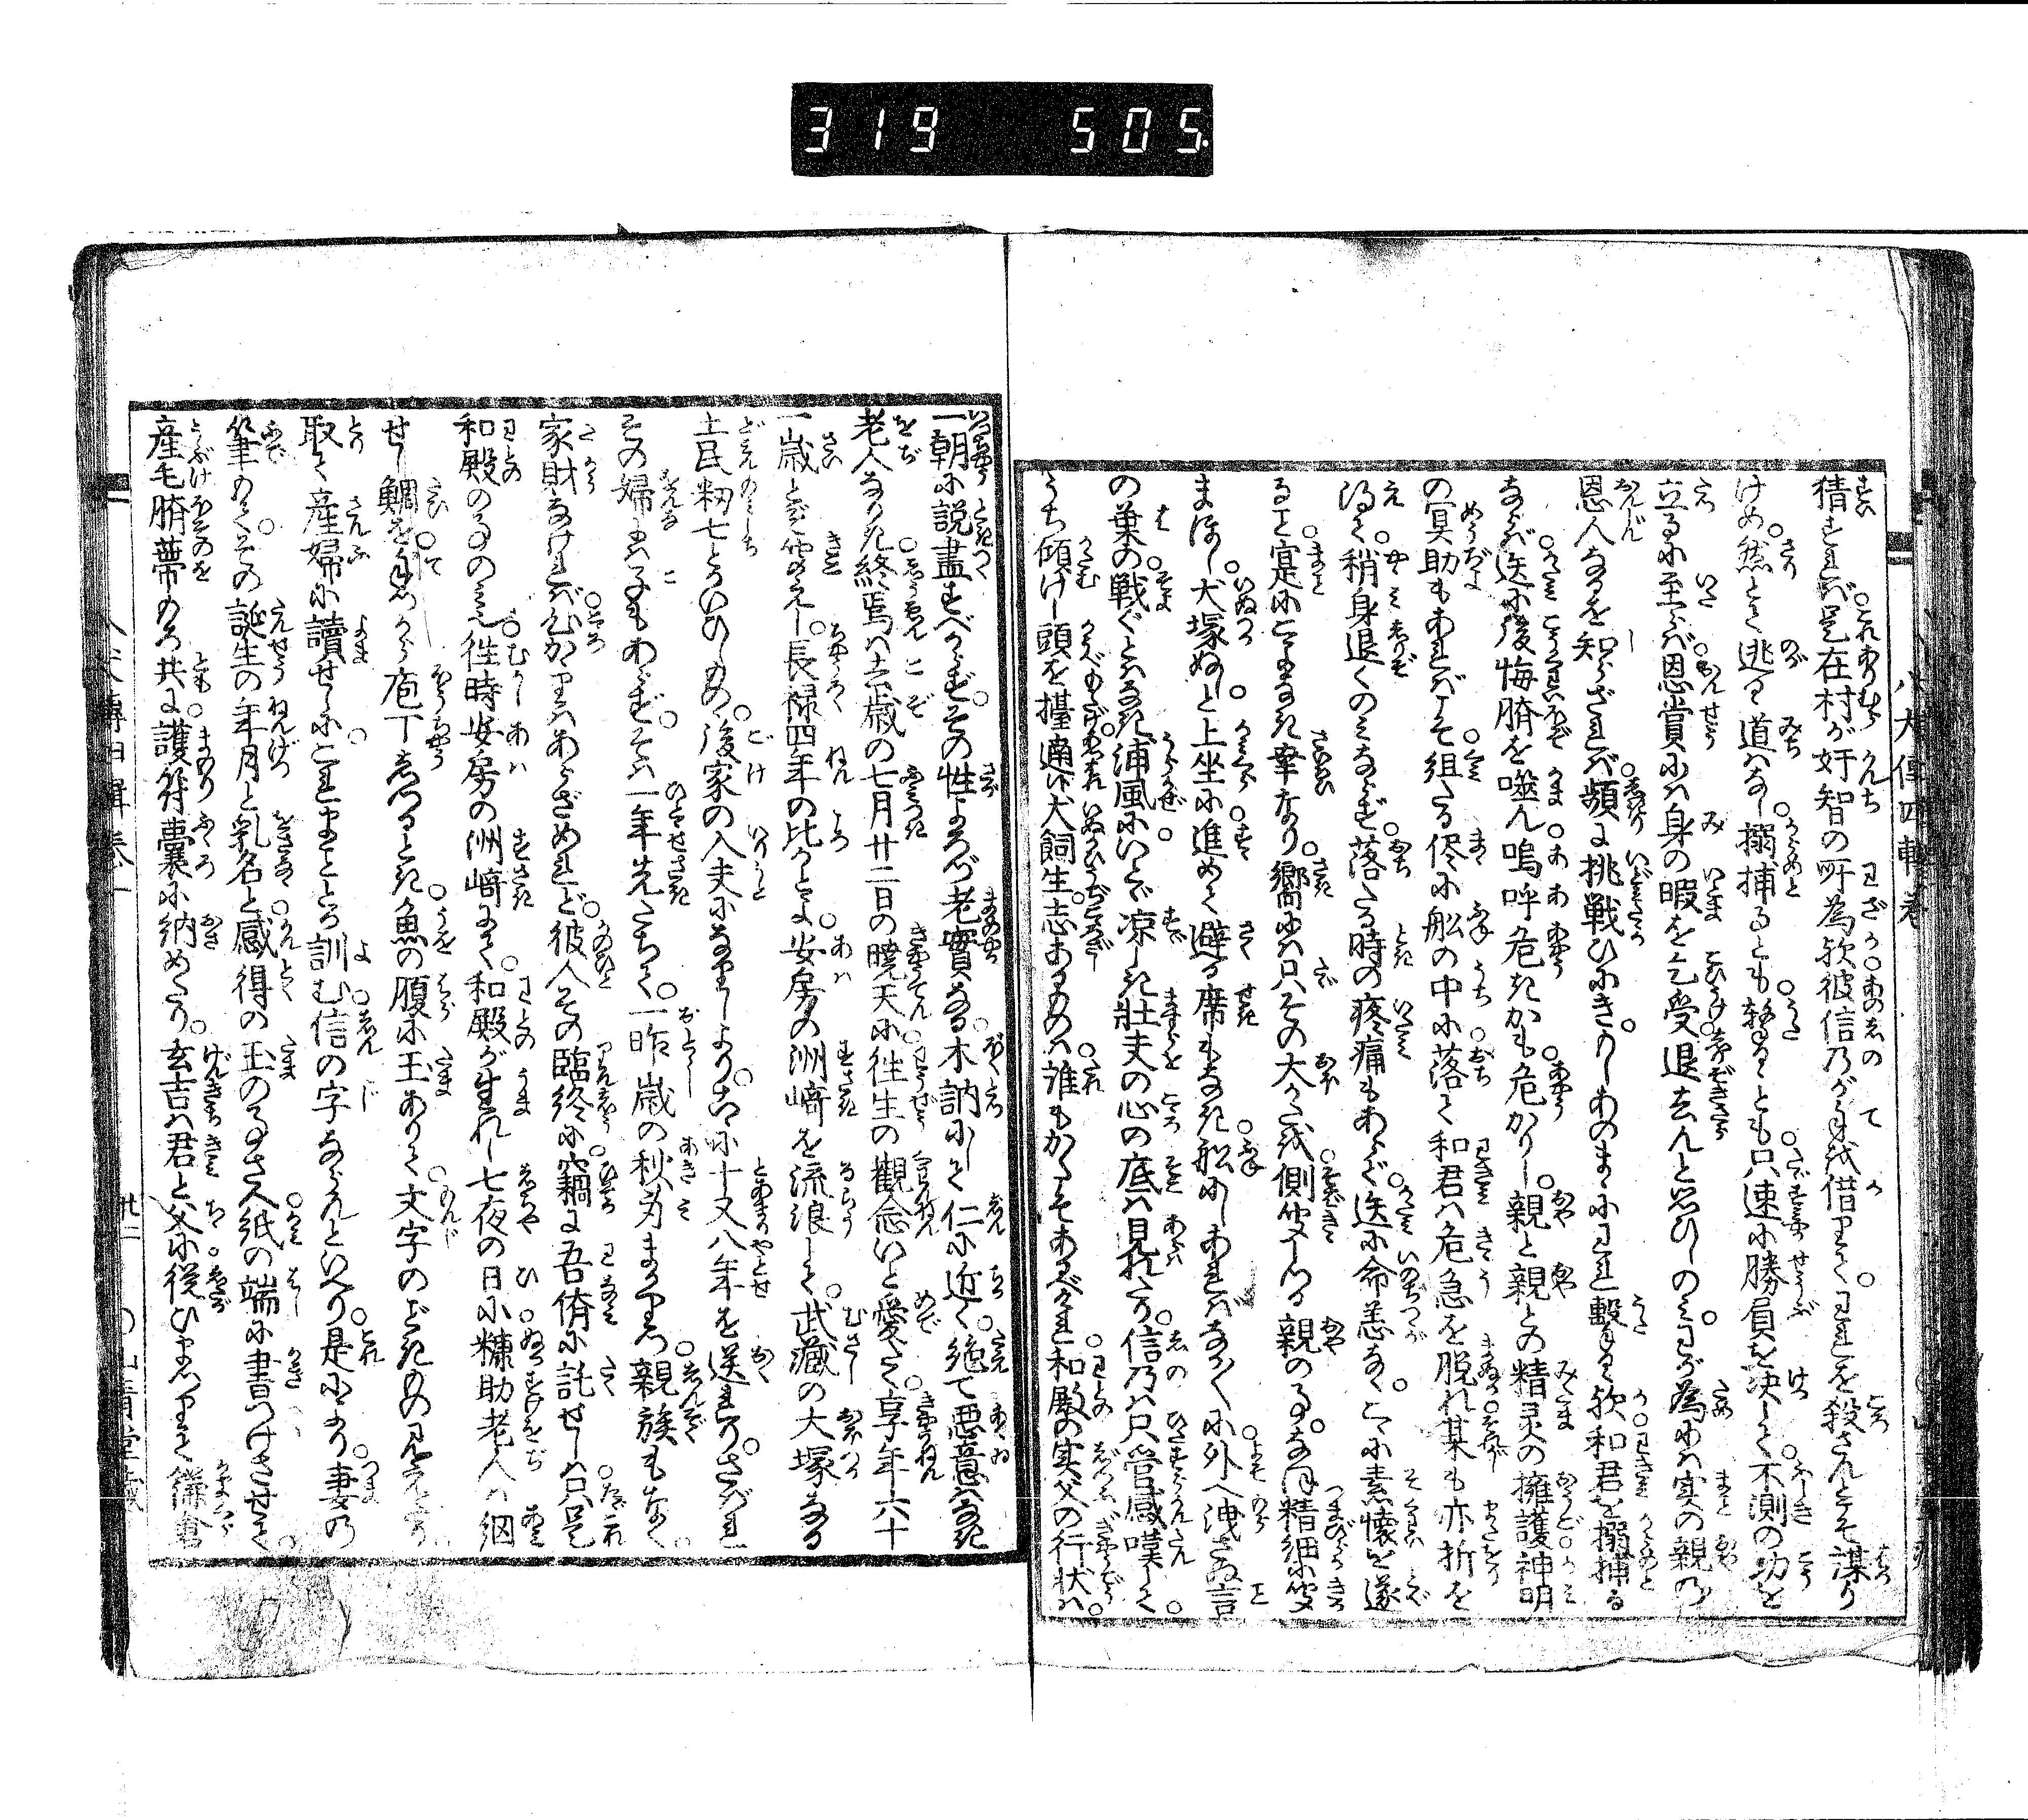 319 505
八犬傳四輯巻
猜すれば是在村が奸智の所為欤彼信乃が手を借りて。われを殺さんとこそ謀り
けめ。然とて逃るゝ道はなし。搦捕るとも撃るゝとも只速に勝負を决して不測の功を
立るに至らば恩賞には身の暇を乞受退去んと思ひしのみ。わが為には実の親の
恩人なるを知らざれば頻に挑戦ひにき。のしあのまゝにわれ撃るゝ欤和君を搦捕る
ならば迭に後悔臍を噬ん嗚呼危きかも危かりし。親と親との精灵の擁護神明
の冥助もあればこそ組たる侭に舩の中に落て和君は危急を脱れ某も亦折を
得て。稍身退くのみならず。落たる時の疼痛もあらず。迭に命恙なく。こゝに素懐を遂
ること寔にこよなき幸なり。嚮には只その大かたを側聞しつる親の事。なほ精細に聞
まほし。犬塚ぬしと上坐に進めて避る席もなき舩にしあればなか〳〵に外へ洩さぬ言
の葉の戦ぐとはなき浦風にいとゞ凉しき壮夫の心の底は見れたり。信乃は只管感嘆して
うち傾けし頭を擡適は犬飼生。志あるものは誰もかくこそあるべけれ和殿の実父の行状は。
一朝に説盡すべからず。その性よろづ老實なる。木訥にして仁に近く。絶て悪意はなき
老人なりき。終焉は去歳の七月廿二日の曉天に。往生の觀念いと愛たく。享年六十
一歳とぞ聞えし。長禄四年の比かとよ。安房の洲﨑を流浪して。武藏の大塚なる
土民籾七とかいひしものゝ。後家の入夫になりしより。こゝに十又八年を送れり。されば
その婦には子もあらず。そは一年先たちて。一昨歳の秋身まかりつ。親族もなく。
家財なければ心がゝりはあらざめれど。彼人その臨終に。竊に吾儕に託せしは。只是
和殿の事のみ。往時安房の洲﨑にて。和殿が生れし七夜の日に。糠助老人は網
せし鯛を手づから庖丁しつるとき。魚の腹に玉ありて。文字のごときもの見えたり。
取て産婦に讀せしに。これまことゝか訓む信の字ならんといへり。是により。妻の
筆もて。その誕生の年月と乳名と感得の玉の事さへ紙の端に書つけさせて。
産毛臍帯もろ共に。護符囊に納めたり。玄吉は君と父に從ひまゐりて鎌倉
八犬傳四輯巻一
廿二
○山青堂藏